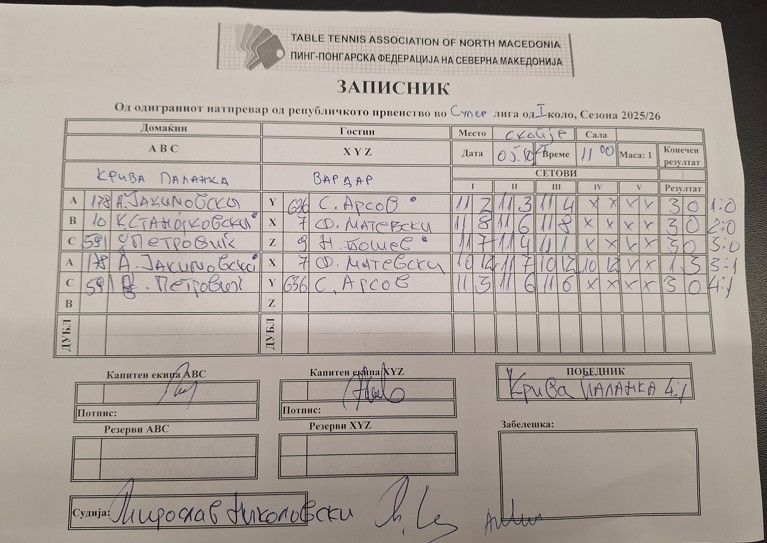 TABLE TENNIS ASSOCIATION OF NORTH MACEDONIA
ПИНГ-ПОНГАРСКА ФЕДЕРАЦИЈА НА СЕВЕРНА МАКЕДОНИЈА
ЗАПИСНИК
Од одиграниот натпревар од републичкото првенство во Супер лига од I коло, Сезона 2025/26
Домаќин Гостин Место Скопје Сала
A B C X Y Z Дата Време 11 00 Маса: 1 Конечен резултат
КРИВА ПАЛАНКА ВАРДАР СЕТОВИ
I II III IV V Резултат
A 178 А. ЈАКИМОВСКИ Y 636 С. АРСОВ 11 2 11 3 11 4 x x x x 3 0 1:0
B 10 К. СТАНОЈКОВСКИ X 7 Ф. МАТЕВСКИ 11 8 11 6 11 8 x x x x 3 0 2:0
C 591 ПЕТРОВИЌ Z 9 Н. БОШЕВ 11 7 11 4 11 1 x x x x 3 0 3:0
A 178 А. ЈАКИМОВСКИ X 7 Ф. МАТЕВСКИ 10 12 11 7 10 12 10 12 x x 1 3 3:1
C 591 ПЕТРОВИЌ Y 636 С. АРСОВ 11 3 11 6 11 6 x x x x 3 0 4:1
B Z
ДУБЛ ДУБЛ
Капитен екипа ABC Капитен екипа XYZ ПОБЕДНИК
КРИВА ПАЛАНКА 4:1
Потпис: Потпис:
Резерви ABC Резерви XYZ Забелешка:
Судија: Мирослав Николовски